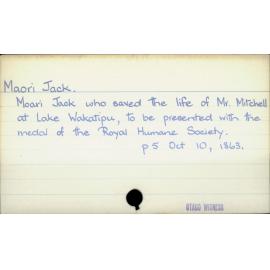 Maori Jack.
Moari Jack who saved the life of Mr. Mitchell
at Lake Wakatipu, to be presented with the
medal of the Royal Humane Society.
p5 Oct 10, 1863.
OTAGO WITNESS